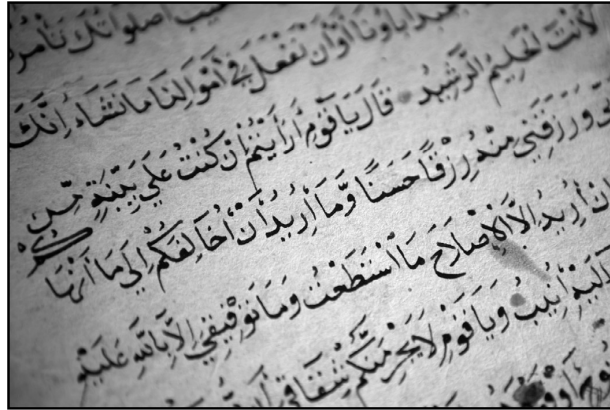 أَصَلَوٰتُكَ تَأْمُرُ
يَعْبُدُ اٰبَاؤُنَا أَوْ أَنْ نَفْعَلَ فِي أَمْوَالِنَا مَا نَشَاءُ إِنَّكَ
لَأَنْتَ الْحَلِيمُ الرَّشِيدُ قَالَ يَا قَوْمِ أَرَأَيْتُمْ إِنْ كُنْتُ عَلَي بَيِّنَةٍ مِّنْ
وَرَزَقَنِي مِنْهُ رِزْقًا حَسَنًا وَّمَا أُرِيدُ أَنْ أُخَالِفَكُمْ إِلَى مَا أَنْهَا كُمْ
أُرِيدُ إِلَّا الْإِصْلَاحَ مَا اسْتَطَعْتُ وَمَا تَوْفِيقِي إِلَّا بِاللّٰهِ عَلَيْهِ
إِلَيْهِ أُنِيبُ وَيَا قَوْمِ لَا يَجْرِمَنَّكُمْ شِقَاقِي أَنْ